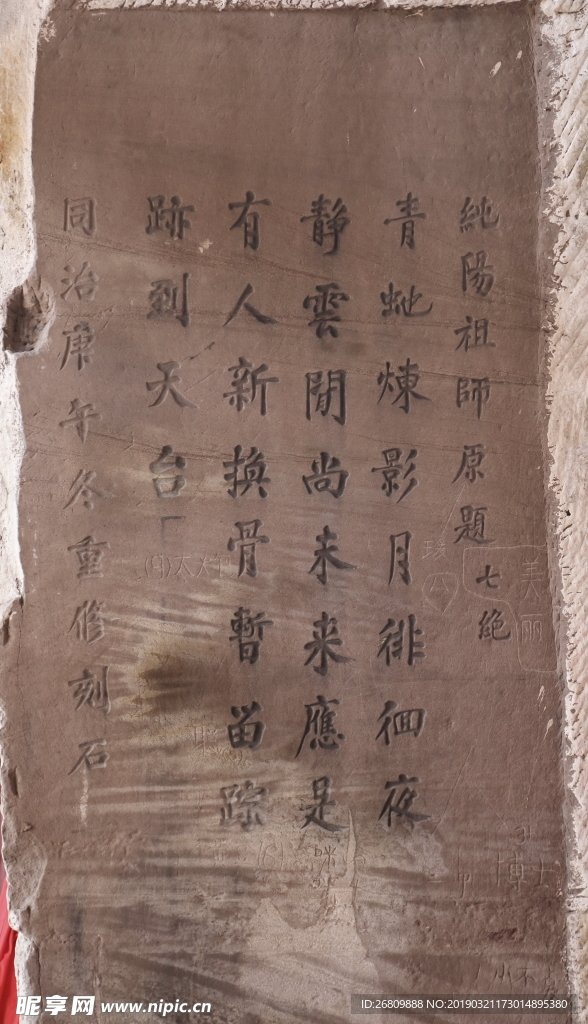 純陽祖師原題七絶
青虵煉影月徘徊夜
静雲閒尚未来應是
有人新換骨暫畱踪
跡到天台
同治庚午冬重修刻石
美丽
博士
昵享网 www.nipic.cn
ID:26809888 NO:20190321173014895380